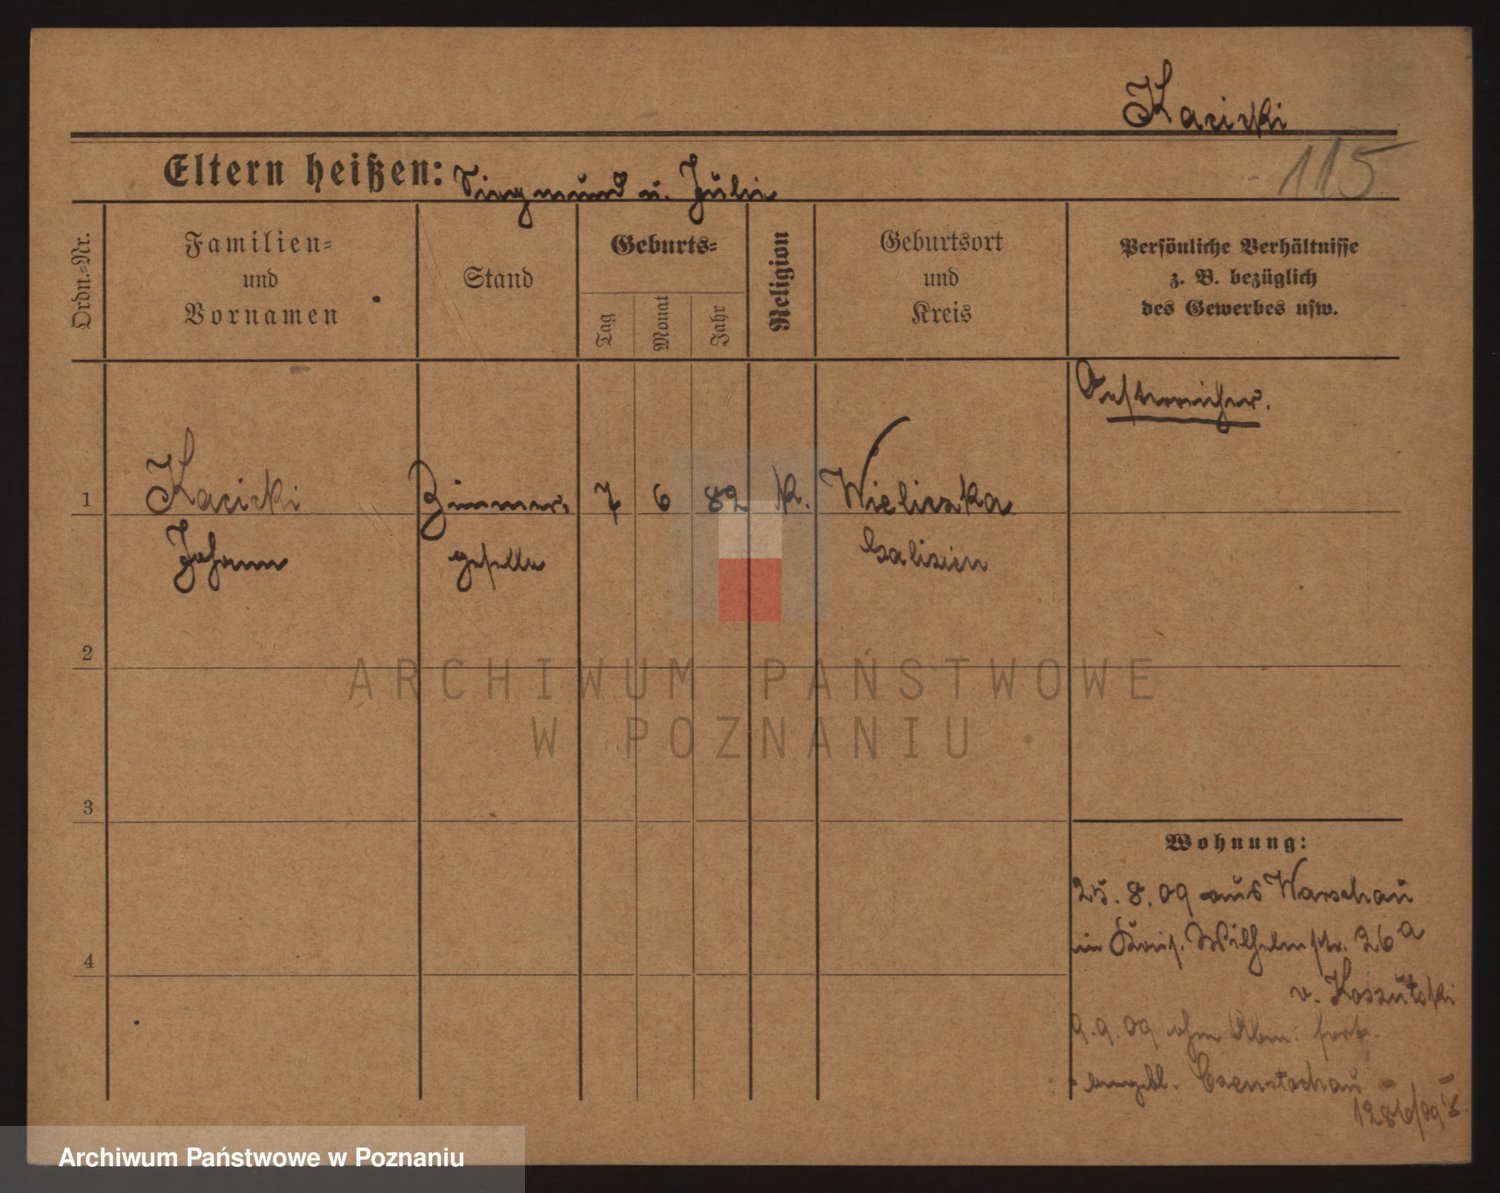 Kacicki
115
Eltern heißen: Siegmund u. Julie
Ordn.-Nr.
Familien-
und
Vornamen
Stand
Geburts-
Tag
Monat
Jahr
Religion
Geburtsort
und
Kreis
Persönliche Verhältnisse
z. B. bezüglich
des Gewerbes usw.
Oesterreicher.
1
Kacicki
Johann
Zimmer-
geselle
7
6
82
K.
Wieliczka
Galizien
2
3
4
Wohnung:
25.8.09 aus Warschau
in Wilhelmstr. 26a
v. Koszutski
9.9.09 ohne Abm. fort.
angebl. Czenstochau
ARCHIWUM PAŃSTWOWE
W POZNANIU
Archiwum Państwowe w Poznaniu